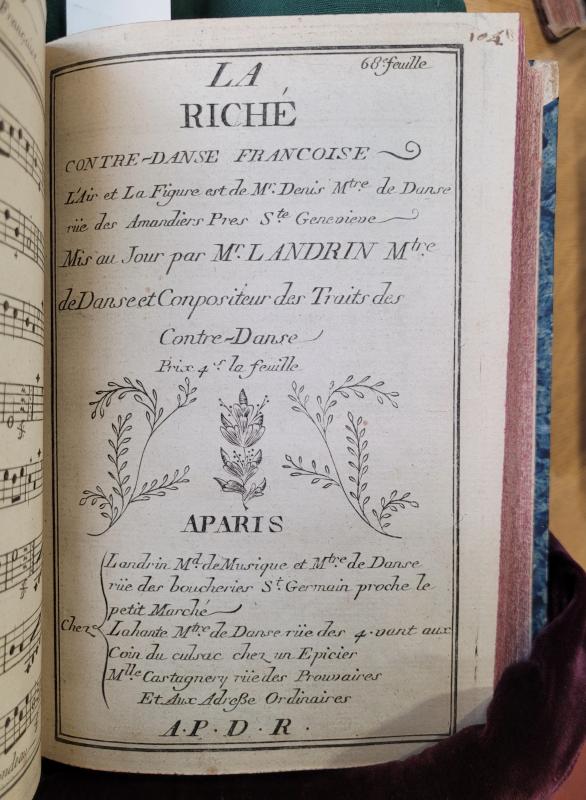 104
68.e feuille
LA
RICHÉ
CONTRE-DANSE FRANCOISE
L'Air et La Figure est de Mr. Denis Mtre de Danse
rüe des Amandiers Pres Ste Genevieve
Mis au Jour par Mr. LANDRIN Mtre
de Danse et Conpositeur des Traits des
Contre-Danse
Prix 4 s. la feuille
APARIS
Landrin Md. de Musique et Mtre de Danse
rüe des boucheries St. Germain proche le
petit Marché
Chez Lahante Mtre de Danse rüe des 4. vant aux
Coin du culsac chez un Epicier
Mlle Castagnery rüe des Prouvaires
Et Aux Adreße Ordinaires
A.P.D.R.